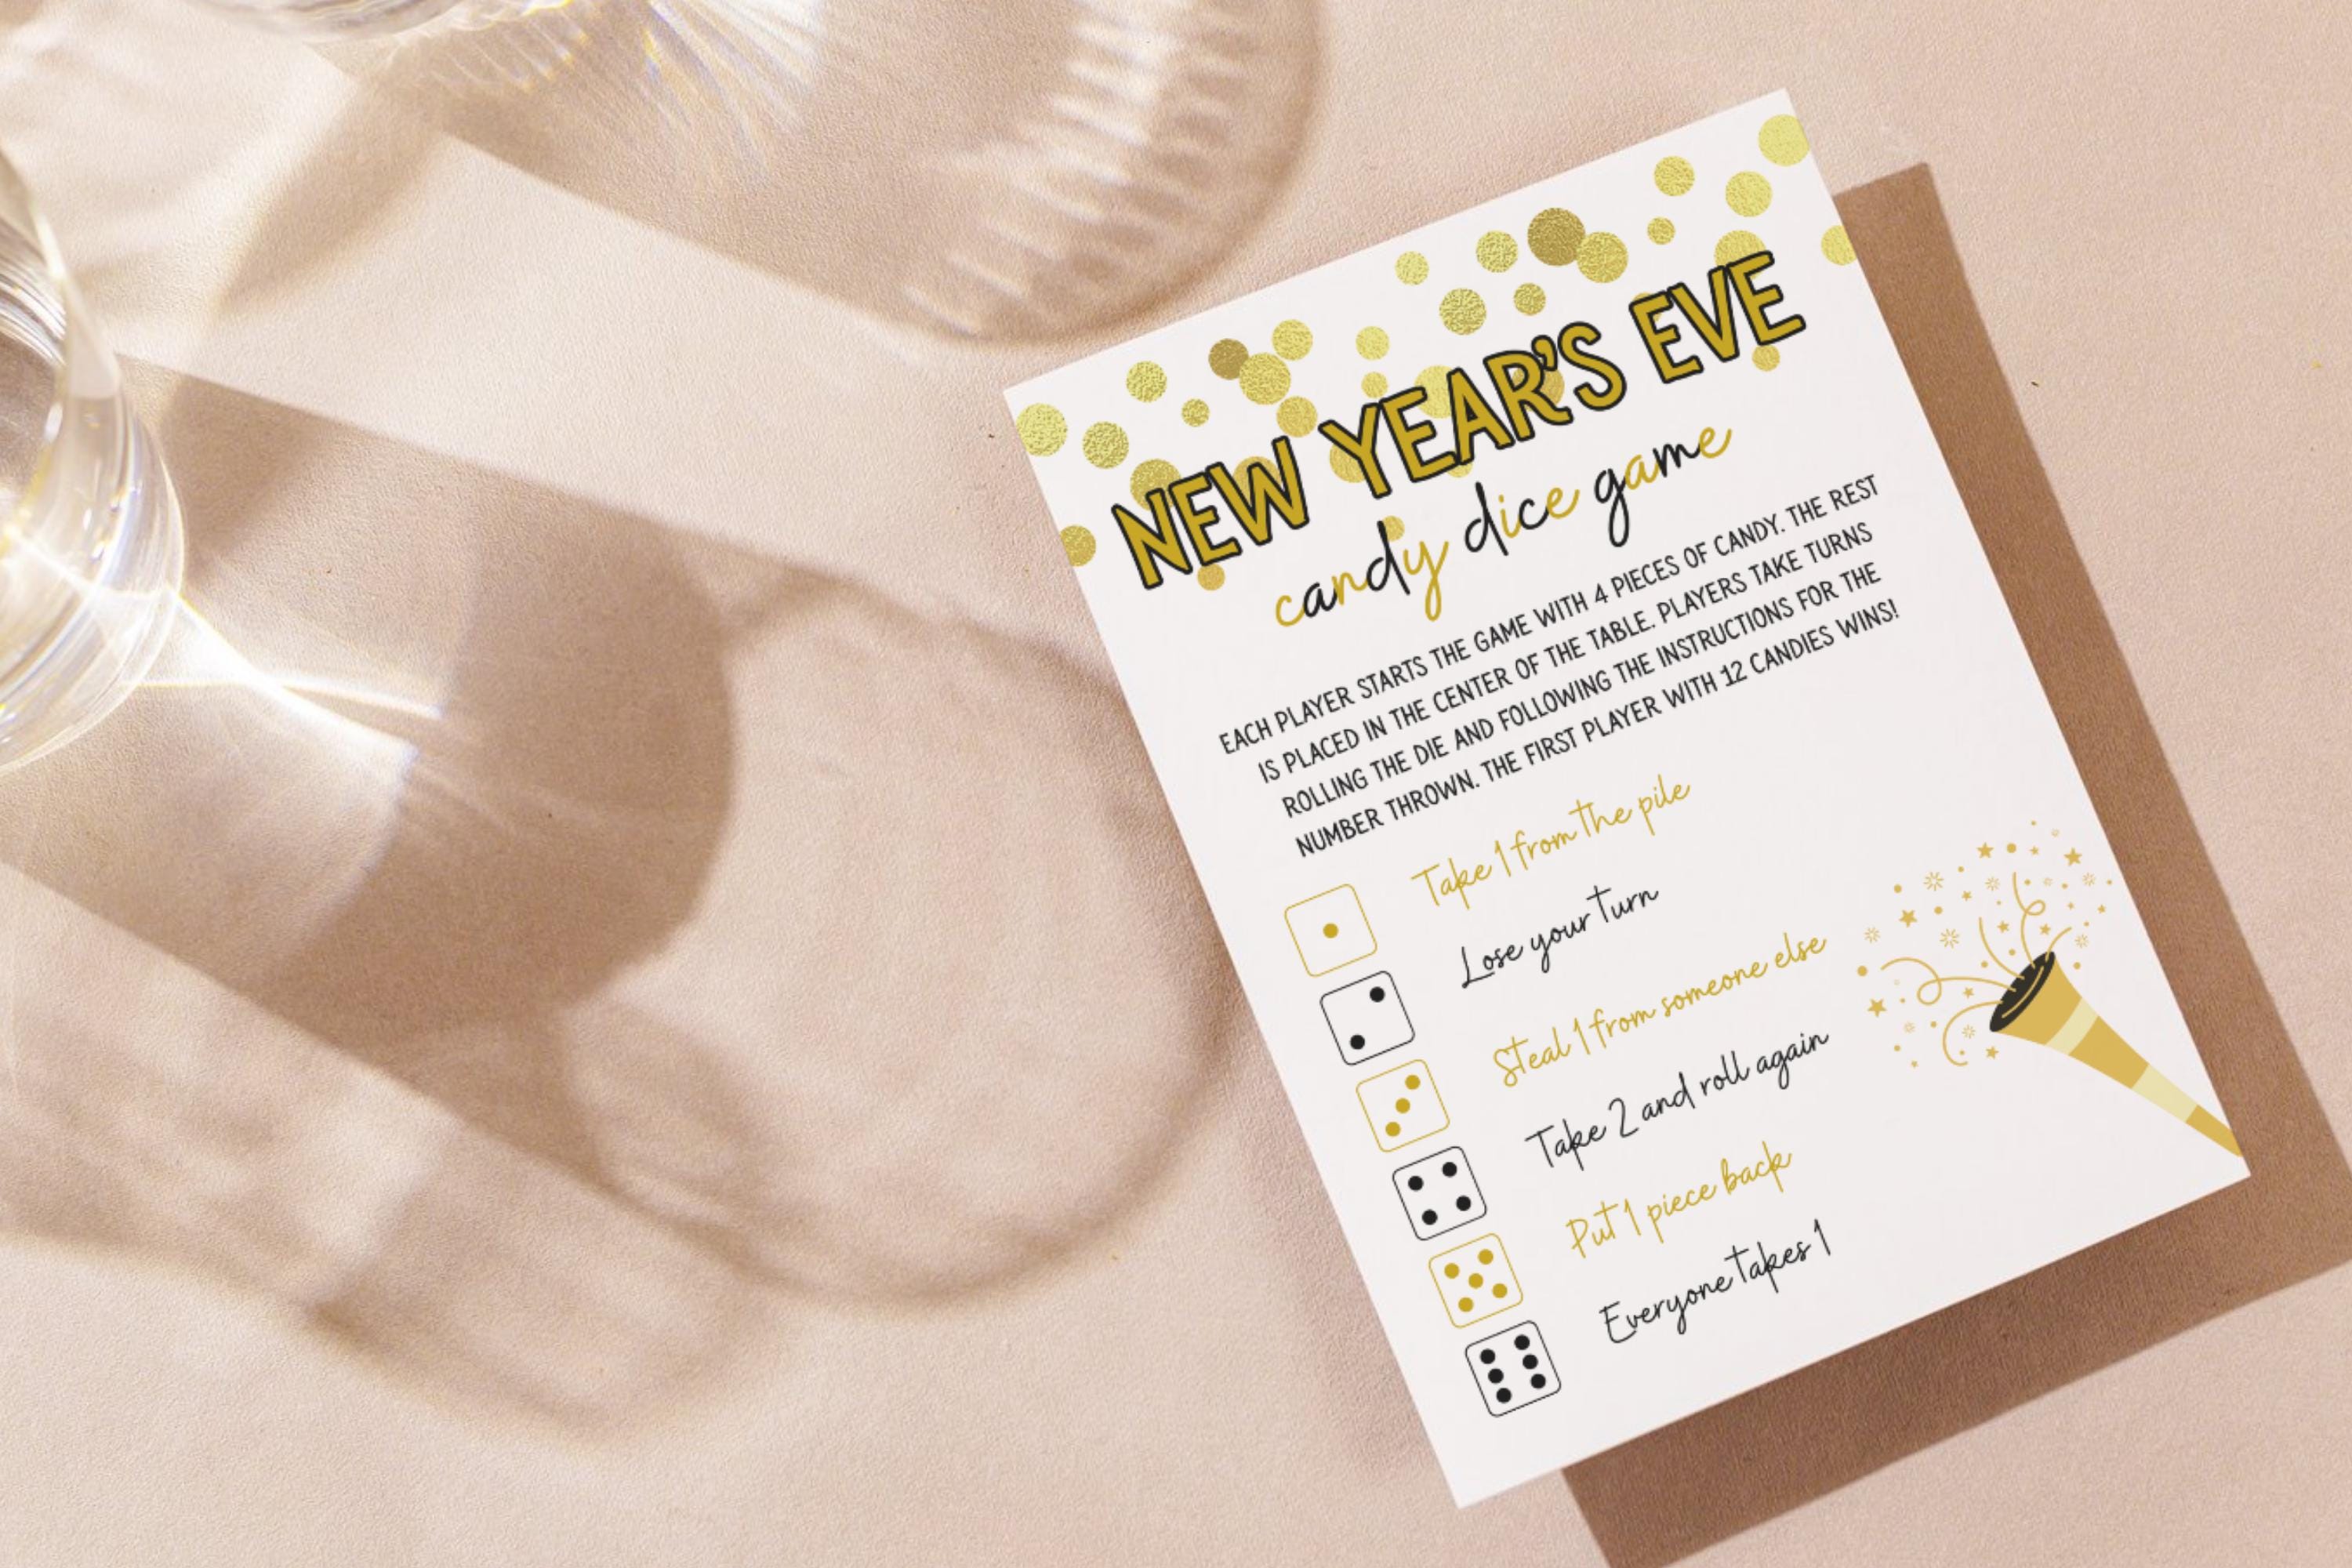 NEW YEAR'S EVE
candy dice game
EACH PLAYER STARTS THE GAME WITH 4 PIECES OF CANDY. THE REST
IS PLACED IN THE CENTER OF THE TABLE. PLAYERS TAKE TURNS
ROLLING THE DIE AND FOLLOWING THE INSTRUCTIONS FOR THE
NUMBER THROWN. THE FIRST PLAYER WITH 12 CANDIES WINS!
Take 1 from the pile
Lose your turn
Steal 1 from someone else
Take 2 and roll again
Put 1 piece back
Everyone takes 1